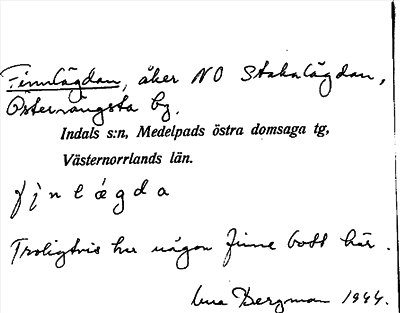 Finnlägdan, åker NO Stakalägdan,
Österrängsta by.
Indals s:n, Medelpads östra domsaga tg,
Västernorrlands län.
fi̯nlǽgda
Troligtvis har någon finne bott här.
Bergman 1944.